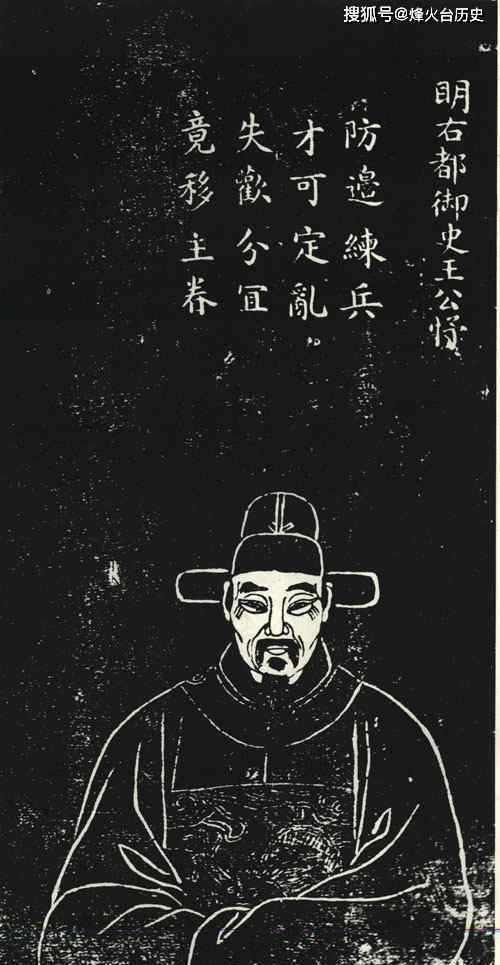 搜狐号@烽火台历史
明右都御史王公忬
防邊練兵
才可定亂
失歡分宜
竟移主眷